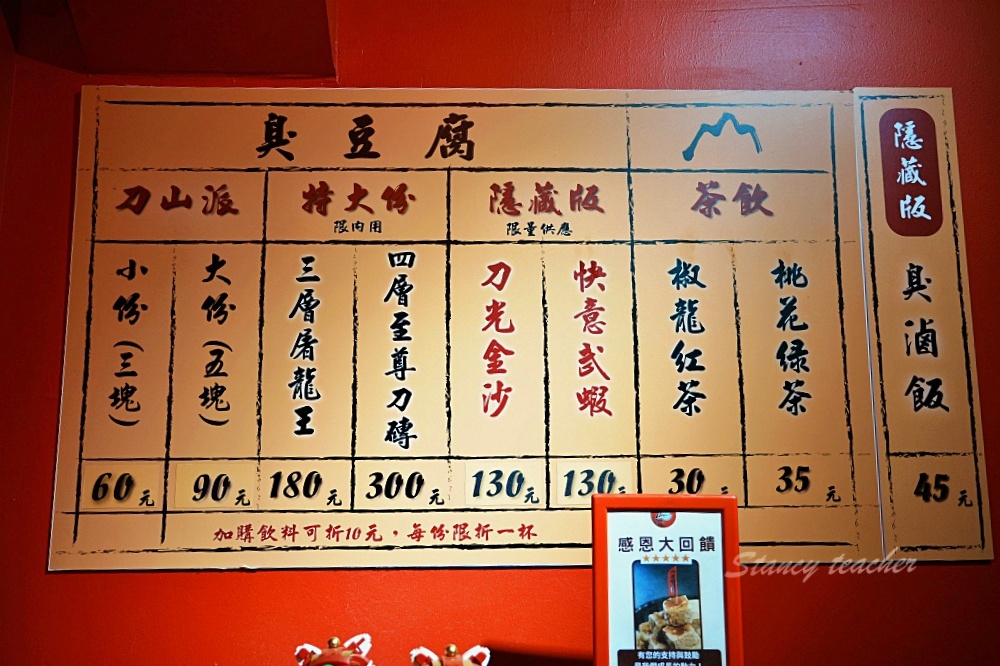 臭豆腐
刀山派
特大份
限內用
隱藏版
限量供應
茶飲
小份(三塊)
60元
大份(五塊)
90元
三層屠龍王
180元
四層至尊刀磚
300元
刀光金沙
130元
快意貳蝦
130元
椒龍紅茶
30元
桃花綠茶
35元
加購飲料可折10元，每份限折一杯
隱藏版
臭滷飯
45元
感恩大回饋
★★★★★
有您的支持與鼓勵
Stancy teacher